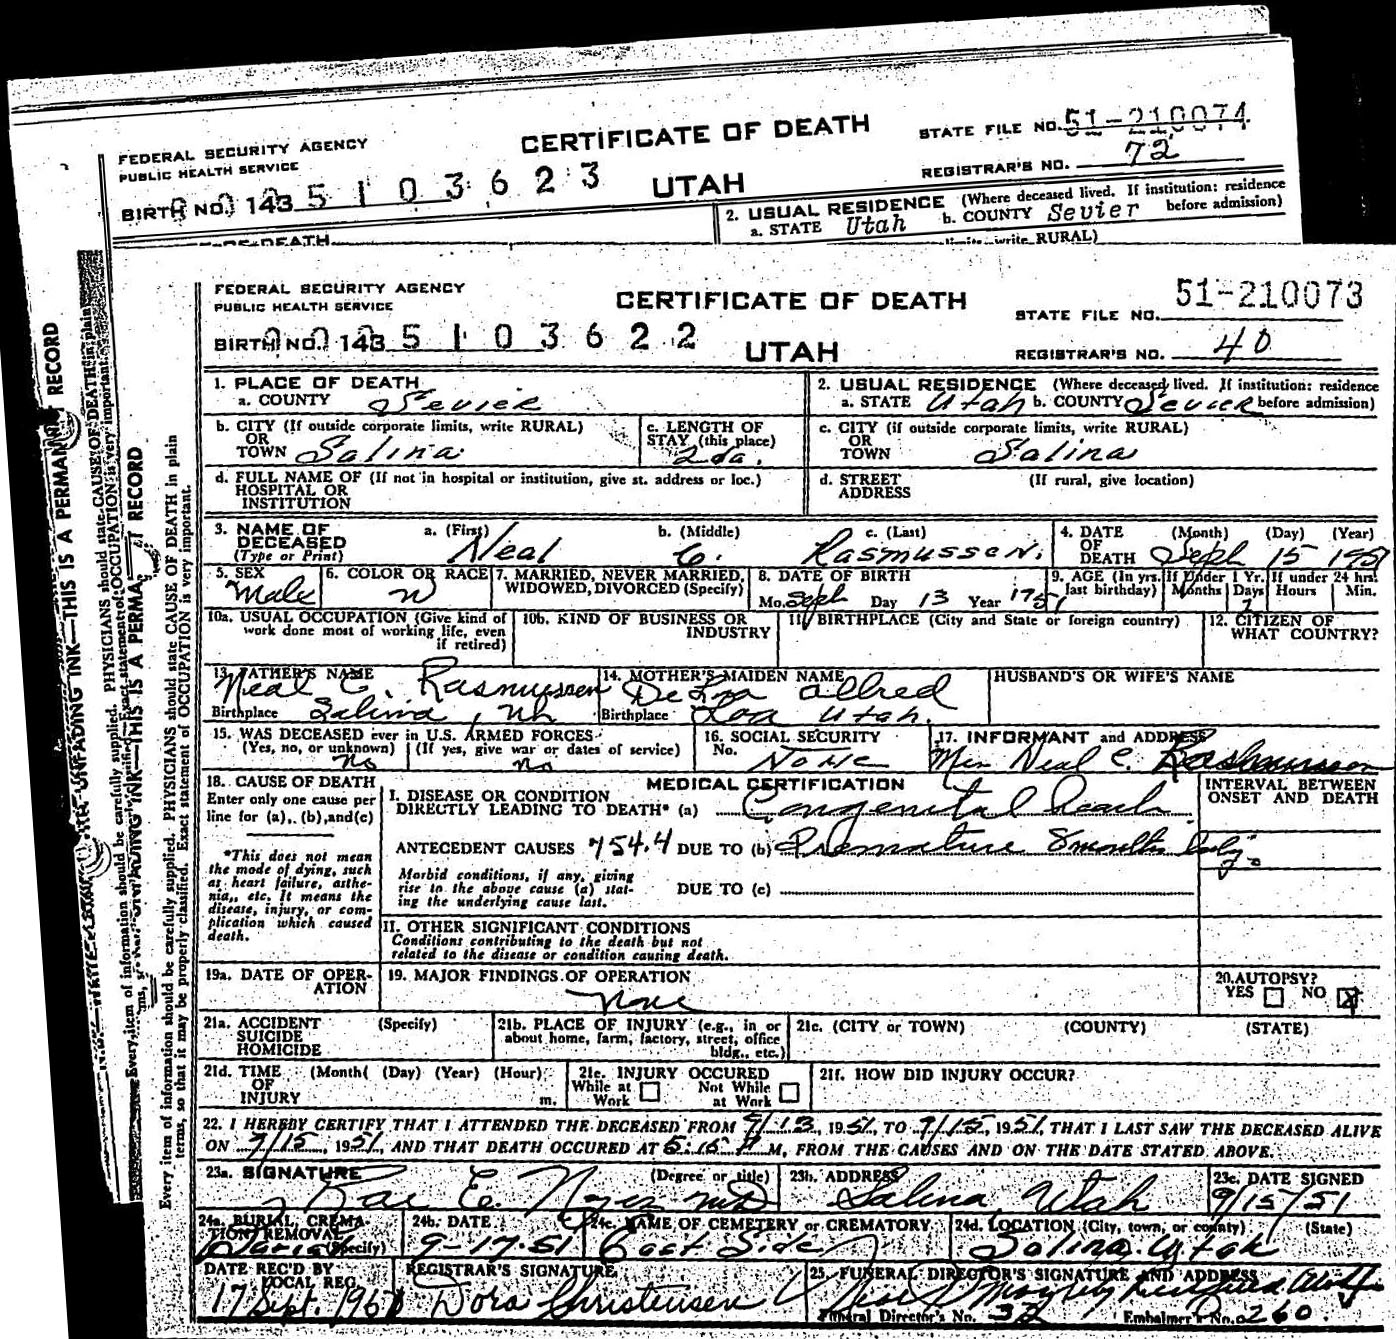 CERTIFICATE OF DEATH
FEDERAL SECURITY AGENCY
PUBLIC HEALTH SERVICE
STATE FILE NO. 51-210074
REGISTRAR'S NO. 72
BIRTH NO. 143 5 1 0 3 6 2 3
UTAH
2. USUAL RESIDENCE (Where deceased lived. If institution: residence before admission)
a. STATE Utah b. COUNTY Sevier
write RURAL)
FEDERAL SECURITY AGENCY
PUBLIC HEALTH SERVICE
CERTIFICATE OF DEATH
STATE FILE NO. 51-210073
BIRTH NO. 143 5 1 0 3 6 2 2
UTAH
REGISTRAR'S NO. 40
1. PLACE OF DEATH
a. COUNTY Sevier
2. USUAL RESIDENCE (Where deceased lived. If institution: residence before admission)
a. STATE Utah b. COUNTY Sevier
b. CITY (If outside corporate limits, write RURAL)
OR
TOWN Salina
c. LENGTH OF
STAY (this place)
2 da.
c. CITY (if outside corporate limits, write RURAL)
OR
TOWN Salina
d. FULL NAME OF (If not in hospital or institution, give st. address or loc.)
HOSPITAL OR
INSTITUTION
d. STREET
ADDRESS
(If rural, give location)
3. NAME OF
DECEASED
(Type or Print)
a. (First) Neal
b. (Middle) C.
c. (Last) Rasmussen.
4. DATE
OF
DEATH
(Month) (Day) (Year)
Sept 15 1951
5. SEX
Male
6. COLOR OR RACE
W
7. MARRIED, NEVER MARRIED,
WIDOWED, DIVORCED (Specify)
8. DATE OF BIRTH
Mo. Sept Day 13 Year 1951
9. AGE (In yrs.
last birthday)
If Under 1 Yr.
Months Days
2
If under 24 hrs.
Hours Min.
10a. USUAL OCCUPATION (Give kind of
work done most of working life, even
if retired)
10b. KIND OF BUSINESS OR
INDUSTRY
11. BIRTHPLACE (City and State or foreign country)
12. CITIZEN OF
WHAT COUNTRY?
13. FATHER'S NAME
Neal C. Rasmussen
Birthplace Salina, Uh
14. MOTHER'S MAIDEN NAME
Allred
Birthplace Loa Utah.
HUSBAND'S OR WIFE'S NAME
15. WAS DECEASED ever in U.S. ARMED FORCES
(Yes, no, or unknown) (If yes, give war or dates of service)
no no
16. SOCIAL SECURITY
No. None
17. INFORMANT and ADDRESS
Neal C. Rashmussen
18. CAUSE OF DEATH
Enter only one cause per
line for (a), (b), and (c)
*This does not mean
the mode of dying, such
as heart failure, asthe-
nia, etc. It means the
disease, injury, or com-
plication which caused
death.
MEDICAL CERTIFICATION
I. DISEASE OR CONDITION
DIRECTLY LEADING TO DEATH* (a) Congenital heart
ANTECEDENT CAUSES 754.4 DUE TO (b) Premature 8 months baby.
Morbid conditions, if any, giving
rise to the above cause (a) stat-
ing the underlying cause last.
DUE TO (c)
II. OTHER SIGNIFICANT CONDITIONS
Conditions contributing to the death but not
related to the disease or condition causing death.
INTERVAL BETWEEN
ONSET AND DEATH
19a. DATE OF OPER-
ATION
19. MAJOR FINDINGS OF OPERATION
None
20. AUTOPSY?
YES NO X
21a. ACCIDENT
SUICIDE
HOMICIDE
(Specify)
21b. PLACE OF INJURY (e.g., in or
about home, farm, factory, street, office
bldg., etc.)
21c. (CITY or TOWN) (COUNTY) (STATE)
21d. TIME
OF
INJURY
(Month( (Day) (Year) (Hour)
m.
21e. INJURY OCCURED
While at Work
Not While at Work
21f. HOW DID INJURY OCCUR?
22. I HEREBY CERTIFY THAT I ATTENDED THE DECEASED FROM 9/13, 1951, TO 9/15, 1951, THAT I LAST SAW THE DECEASED ALIVE
ON 9/15, 1951, AND THAT DEATH OCCURED AT 5:15 P M, FROM THE CAUSES AND ON THE DATE STATED ABOVE.
23a. SIGNATURE (Degree or title)
Rae E. Noyes MD
23b. ADDRESS
Salina Utah
23c. DATE SIGNED
9/15/51
24a. BURIAL, CREMA-
TION, REMOVAL
(Specify)
Burial
24b. DATE
9-17-51
24c. NAME OF CEMETERY or CREMATORY
East Side
24d. LOCATION (City, town, or county) (State)
Salina. Utah
DATE REC'D BY
LOCAL REG.
17 Sept. 1951
REGISTRAR'S SIGNATURE
Dora Christensen
25. FUNERAL DIRECTOR'S SIGNATURE AND ADDRESS
Funeral Director's No. 32
Embalmer's No. 260
Every item of information should be carefully supplied. PHYSICIANS should state CAUSE OF DEATH in plain
terms, so that it may be properly classified. Exact statement of OCCUPATION is very important.